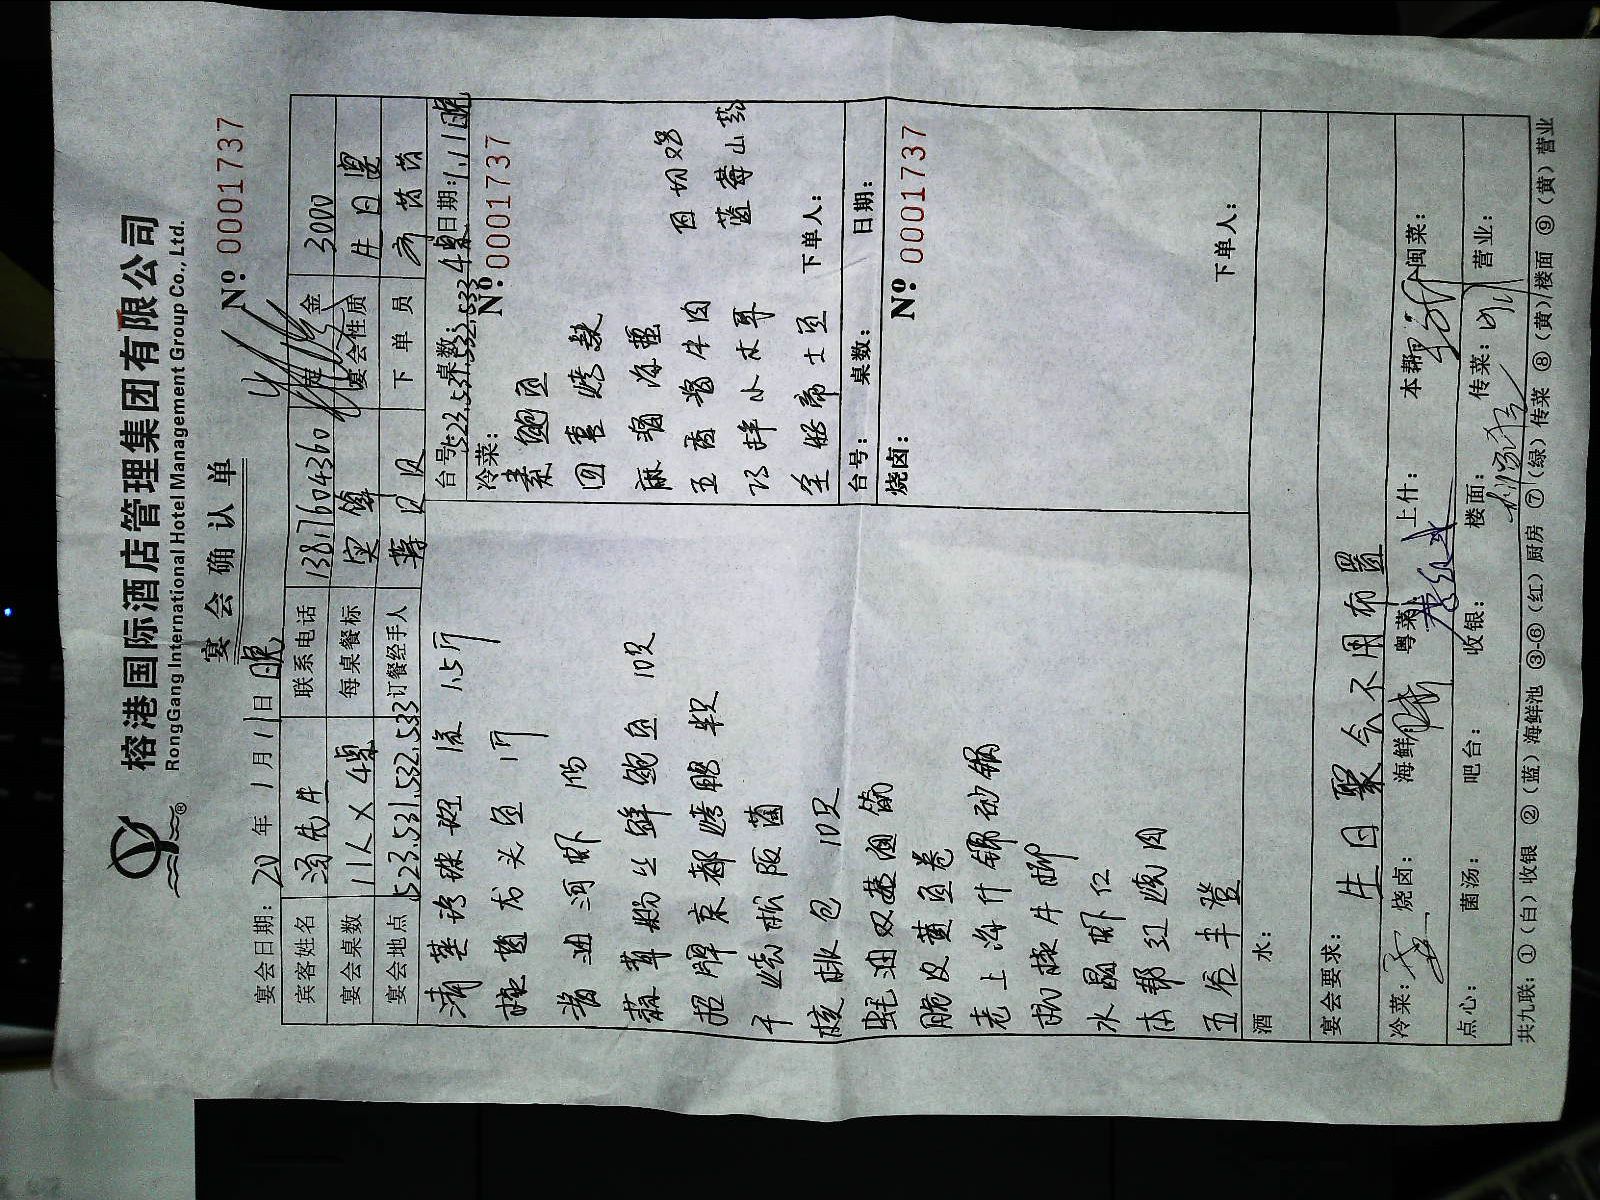 榕港国际酒店管理集团有限公司
RongGang International Hotel Management Group Co., Ltd.
宴会确认单
宴会日期: 20 年 1 月 11 日 晚
№: 0001737
宾客姓名 汤先生 联系电话 13817604360 定金 3000
宴会桌数 11人×4桌 每桌餐标 宴会性质 生日宴
宴会地点 523.531.532.533 订餐经手人 下单员
台号: 523.531.532.533 桌数: 4桌 日期: 1.11晚
冷菜: №: 0001737
素鲍鱼
四喜烤麸
海蜇
五香酱牛肉 西
巧拌小木耳 蓝莓山药
下单人:
清蒸珍珠斑 1条 1.5斤
龙头鱼 1斤
酱油河虾 1份
蒜茸粉丝鲜鲍鱼 10只
招牌京都烤鸭 半只
干烧 菌
核桃包 10只
蚝油双菇
脆皮黄鱼卷
老上海什锦 锅
牛柳
水晶虾仁
本帮红烧肉
五谷丰登
台号: 桌数: 日期:
烧卤: №: 0001737
下单人:
酒水:
宴会要求: 生日聚会不用布置
冷菜: 烧卤: 海鲜: 粤菜: 上什: 本帮: 闽菜:
点心: 菌汤: 吧台: 收银: 楼面: 传菜: 营业:
共九联: ①(白)收银 ②(蓝)海鲜池 ③-⑥(红)厨房 ⑦(绿)传菜 ⑧(黄)楼面 ⑨(黄)营业